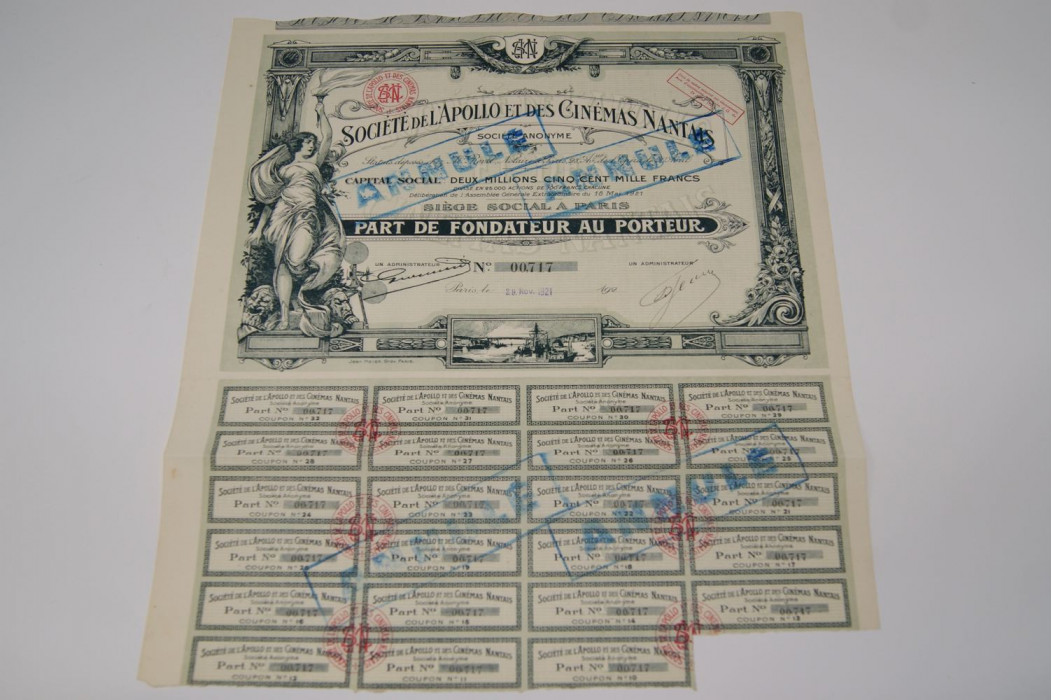 SOCIÉTÉ DE L'APOLLO ET DES CINÉMAS NANTAIS
SOCIÉTÉ ANONYME
CAPITAL SOCIAL DEUX MILLIONS CINQ CENT MILLE FRANCS
Délibération de l'Assemblée Générale Extraordinaire du 18 Mai 1921
SIÈGE SOCIAL A PARIS
ANNULÉ
ANNULÉ
PART DE FONDATEUR AU PORTEUR
UN ADMINISTRATEUR
No. 00.717
UN ADMINISTRATEUR
Paris, le 1921
SOCIÉTÉ DE L'APOLLO ET DES CINÉMAS NANTAIS
Société Anonyme
Part No 00.717
SOCIÉTÉ DE L'APOLLO ET DES CINÉMAS NANTAIS
Société Anonyme
Part No 00.717
COUPON No 31
SOCIÉTÉ DE L'APOLLO ET DES CINÉMAS NANTAIS
Société Anonyme
Part No 00.717
COUPON No 30
SOCIÉTÉ DE L'APOLLO ET DES CINÉMAS NANTAIS
Société Anonyme
Part No 00.717
COUPON No 29
SOCIÉTÉ DE L'APOLLO ET DES CINÉMAS NANTAIS
Société Anonyme
Part No 00.717
COUPON No 28
SOCIÉTÉ DE L'APOLLO ET DES CINÉMAS NANTAIS
Société Anonyme
Part No 00.717
COUPON No 27
SOCIÉTÉ DE L'APOLLO ET DES CINÉMAS NANTAIS
Société Anonyme
Part No 00.717
COUPON No 26
SOCIÉTÉ DE L'APOLLO ET DES CINÉMAS NANTAIS
Société Anonyme
Part No 00.717
COUPON No 25
SOCIÉTÉ DE L'APOLLO ET DES CINÉMAS NANTAIS
Société Anonyme
Part No 00.717
COUPON No 24
SOCIÉTÉ DE L'APOLLO ET DES CINÉMAS NANTAIS
Société Anonyme
Part No 00.717
COUPON No 23
SOCIÉTÉ DE L'APOLLO ET DES CINÉMAS NANTAIS
Société Anonyme
Part No 00.717
COUPON No 22
SOCIÉTÉ DE L'APOLLO ET DES CINÉMAS NANTAIS
Société Anonyme
Part No 00.717
COUPON No 21
ANNULÉ
ANNULÉ
SOCIÉTÉ DE L'APOLLO ET DES CINÉMAS NANTAIS
Société Anonyme
Part No 00.717
COUPON No 20
SOCIÉTÉ DE L'APOLLO ET DES CINÉMAS NANTAIS
Société Anonyme
Part No 00.717
COUPON No 19
SOCIÉTÉ DE L'APOLLO ET DES CINÉMAS NANTAIS
Société Anonyme
Part No 00.717
COUPON No 18
SOCIÉTÉ DE L'APOLLO ET DES CINÉMAS NANTAIS
Société Anonyme
Part No 00.717
COUPON No 17
SOCIÉTÉ DE L'APOLLO ET DES CINÉMAS NANTAIS
Société Anonyme
Part No 00.717
COUPON No 16
SOCIÉTÉ DE L'APOLLO ET DES CINÉMAS NANTAIS
Société Anonyme
Part No 00.717
COUPON No 15
SOCIÉTÉ DE L'APOLLO ET DES CINÉMAS NANTAIS
Société Anonyme
Part No 00.717
COUPON No 14
SOCIÉTÉ DE L'APOLLO ET DES CINÉMAS NANTAIS
Société Anonyme
Part No 00.717
COUPON No 13
SOCIÉTÉ DE L'APOLLO ET DES CINÉMAS NANTAIS
Société Anonyme
Part No 00.717
COUPON No 12
SOCIÉTÉ DE L'APOLLO ET DES CINÉMAS NANTAIS
Société Anonyme
Part No 00.717
COUPON No 11
SOCIÉTÉ DE L'APOLLO ET DES CINÉMAS NANTAIS
Société Anonyme
Part No 00.717
COUPON No 10